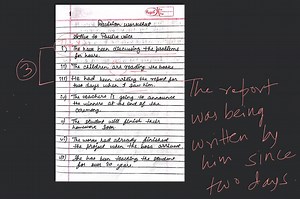 Revision Worksheet
Active to Passive voice
i) The have been discussing the problems
for hours.
ii) The children are reading the books
iii) He had been writing the report for
two days when I saw him.
iv) The teachers is going to announce
the winners at the end of the
ceremony.
v) The student will finish their
homework soon.
vi) The worker had already finished
the project when the boss arrived.
vii) She has been teaching the student
for over 20 years.
3
The report
was being
written by
him since
two days.